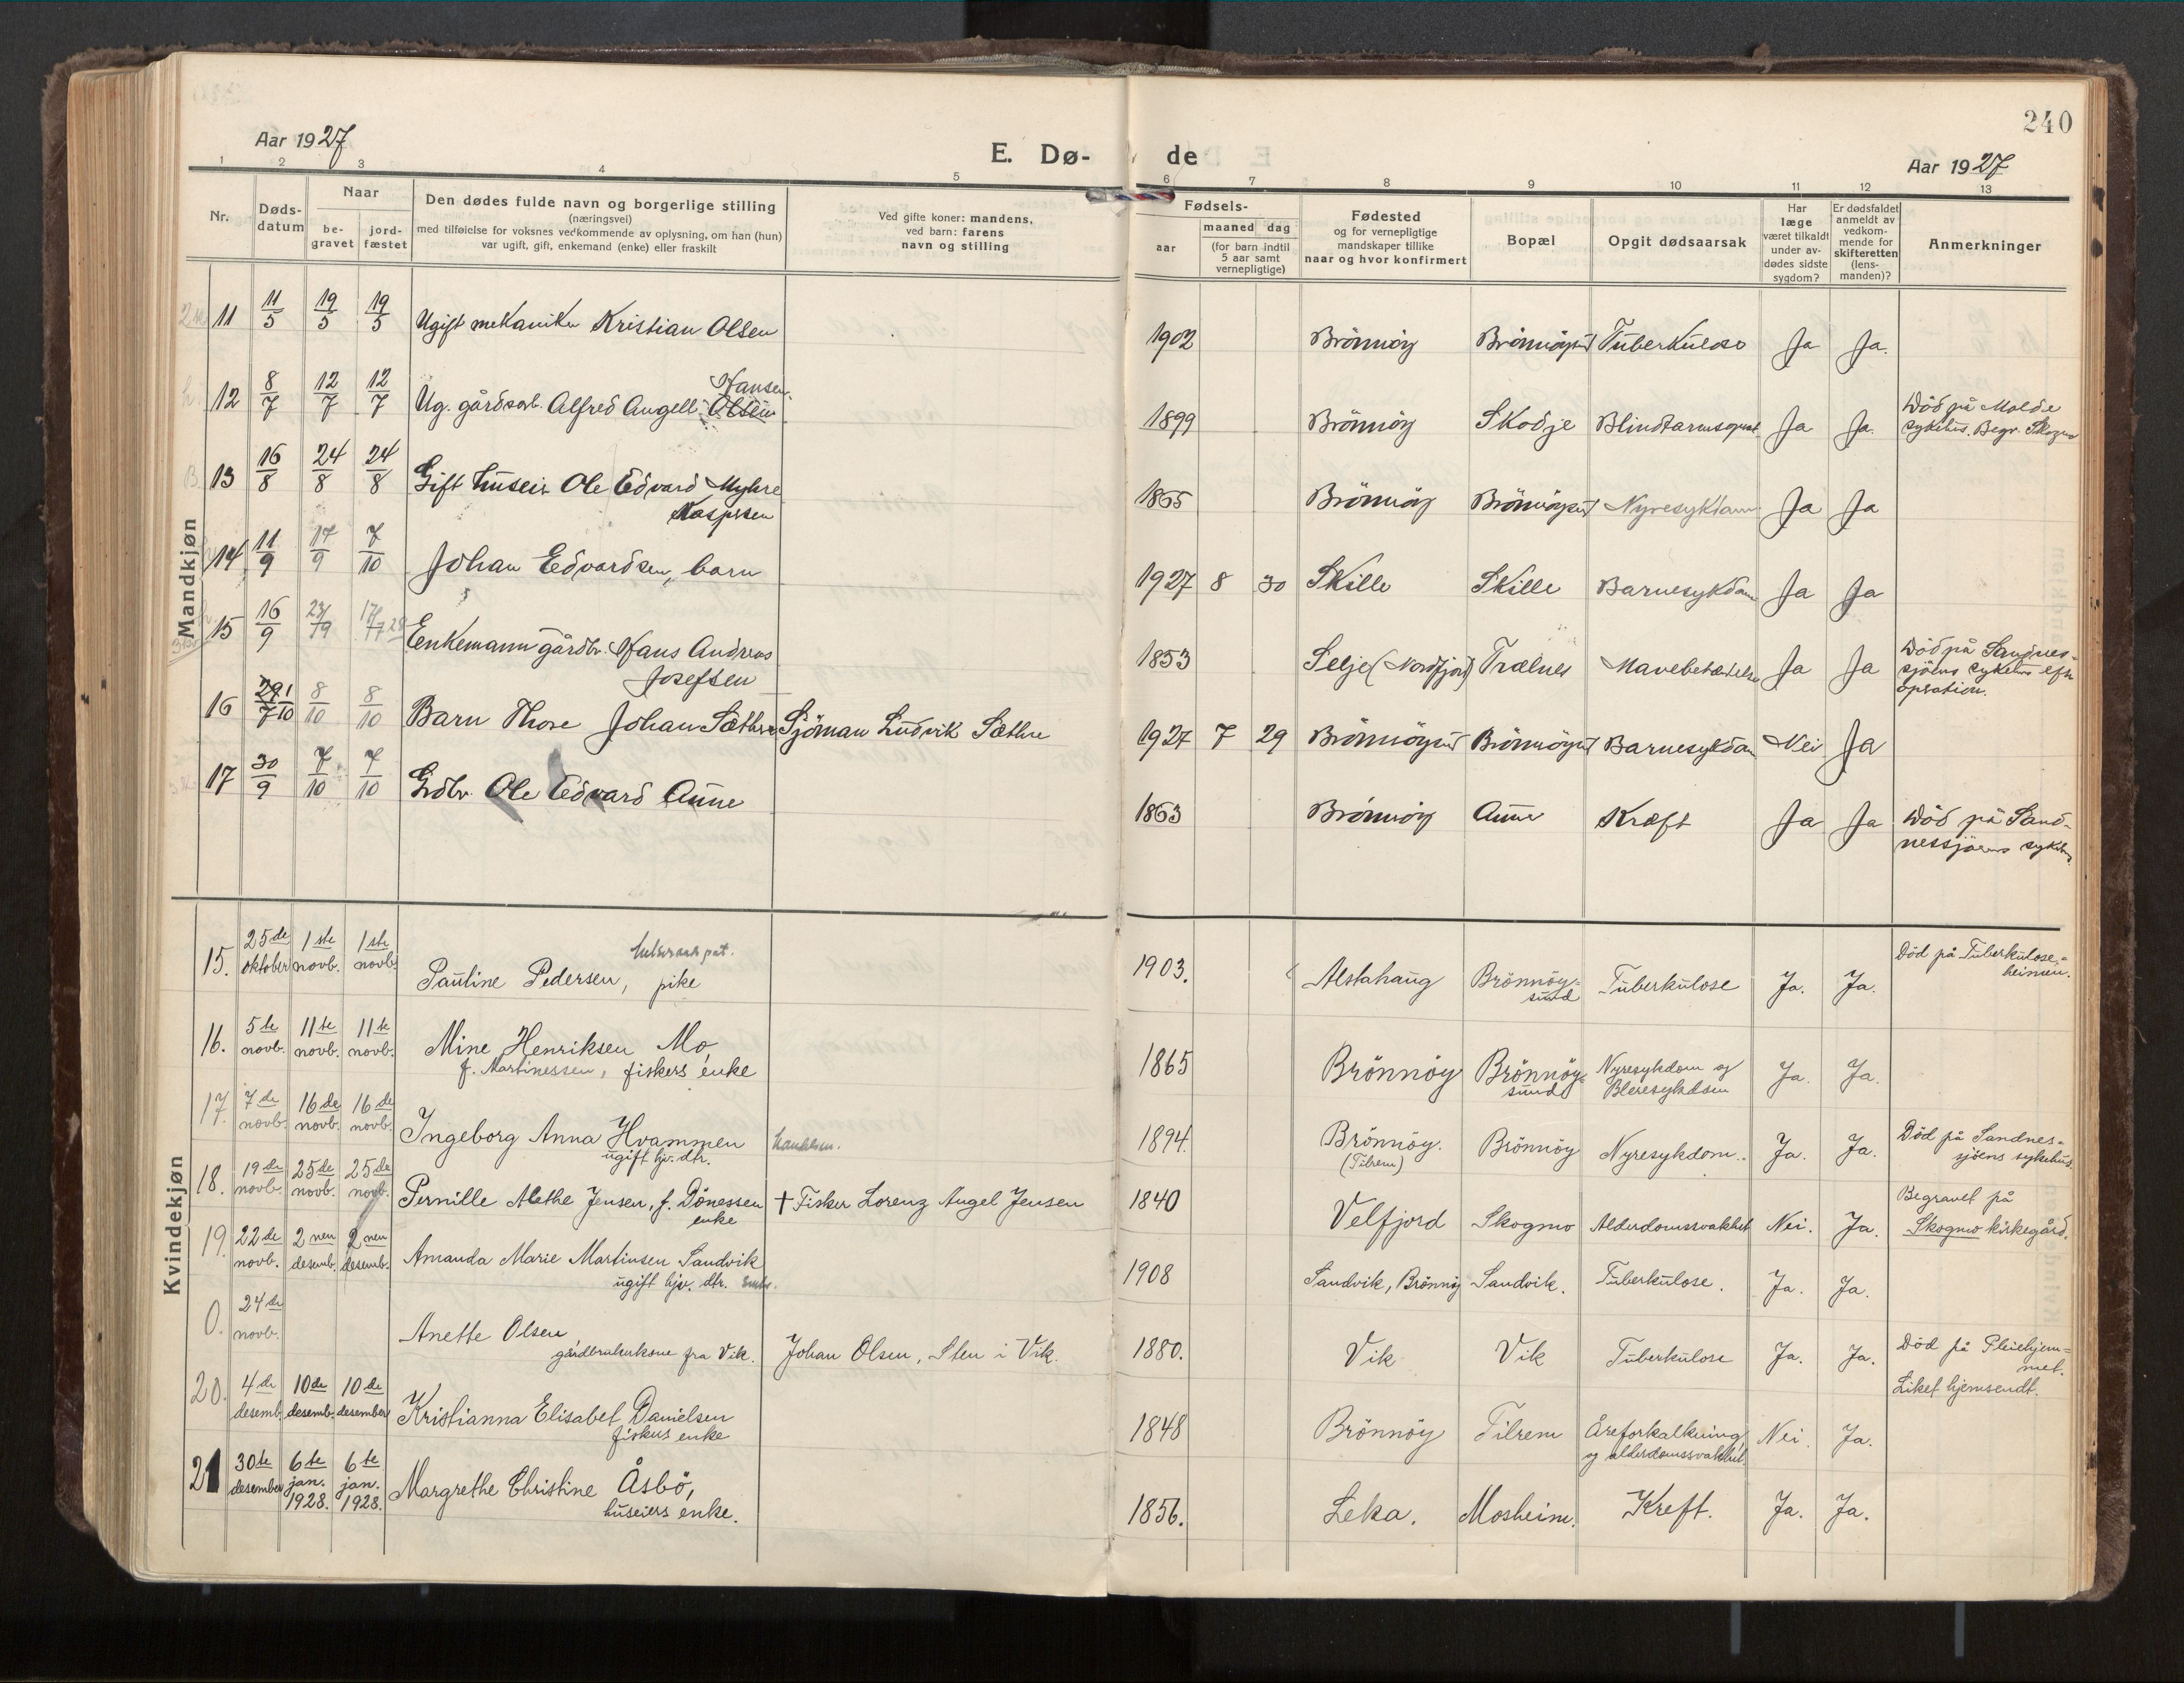 240
Aar 1927
E. Dø-
de
Aar 1927
1 2 3 4 5 6 7 8 9 10 11 12 13
Nr.
Døds-
datum
Naar
be-
gravet
jord-
fæstet
Den dødes fulde navn og borgerlige stilling
(næringsvei)
med tilføielse for voksnes vedkommende av oplysning, om han (hun)
var ugift, gift, enkemand (enke) eller fraskilt
Ved gifte koner: mandens,
ved barn: farens
navn og stilling
Fødsels-
aar
maaned dag
(for barn indtil
5 aar samt
vernepligtige)
Fødested
og for vernepligtige
mandskaper tillike
naar og hvor konfirmert
Bopæl
Opgit dødsaarsak
Har
læge
været tilkaldt
under av-
dødes sidste
sygdom?
Er dødsfaldet
anmeldt av
vedkom-
mende for
skifteretten
(lens-
manden)?
Anmerkninger
Mandkjøn
11 11/5 19/5 19/5 Ugift mekaniker Kristian Olsen 1902 Brönnöy Brönnöysund Tuberkulose Ja Ja.
Hansen.
12 8/7 12/7 12/7 Ug. gårdsarb. Alfred Angell Olsen 1899 Brönnöy Skodje Blindtarmsoperat. Ja Ja. Död på Molde
sykehus. Begr. Skogmo
13 16/8 24/8 24/8 Gift huseier Ole Edvard Myhre 1865 Brönnöy Brönnöysund Nyresykdom Ja Ja
Kaspersen
14 11/9 17/9 7/10 Johan Edvardsen, barn 1927 8 30 Skille Skille Barnesykdom Ja Ja
15 16/9 Enkemann gårdbr. Hans Andreas 1853 Selje (Nordfjord) Trælnes Mavebetændelse Ja Ja Död på Sandnes-
Josefsen sjöens sykehus efter
operation.
16 29/7 1/10 8/10 8/10 Barn Thore Johan Sæthre Sjöman Ludvik Sæthre 1927 7 29 Brönnöysund Brönnöysund Barnesykdom Nei Ja
17 30/9 7/10 7/10 Grdbr. Ole Edvard Aune 1863 Brönnöy Aune Kræft Ja Ja Död på Sand-
nessjöens sykehus
Kvindekjøn
15. 25de oktober 1ste novb. 1ste novb. Pauline Pedersen, pike 1903. Alstahaug Brönnöy-
sund Tuberkulose Ja. Ja. Död på Tuberkulose-
heimen.
16. 5te novb. 11te novb. 11te novb. Mine Henriksen Mo, 1865 Brönnöy Brönnöy-
sund Nyresykdom og
Bleresykdom Ja. Ja.
f. Martinessen, fiskers enke
17. 7de novb. 16de novb. 16de novb. Ingeborg Anna Hvammen 1894. Brönnöy.
(Tilrem) Brönnöy Nyresykdom. Ja. Ja. Död på Sandnes-
sjöens sykehus.
ugift hjv. dtr.
18. 19de novb. 25de novb. 25de novb. Pernille Alethe Jensen, f. Dönessen † Fisker Lorenz Angel Jensen 1840 Velfjord Skogmo Alderdomssvakhet Nei. Ja. Begravet på
enke Skogmo kirkegård.
19. 22de novb. 2nen desemb. 2nen desemb. Amanda Marie Martinsen Sandvik 1908 Sandvik, Brönnöy Sandvik. Tuberkulose. Ja. Ja.
ugift hjv. dtr.
0. 24de novb. Anette Olsen, Johan Olsen, Sten i Vik. 1880. Vik Vik Tuberkulose Ja. Ja. Död på Pleiehjem-
met.
Liket hjemsendt.
gårdbrukerkone fra Vik.
20. 4de desemb. 10de desemb. 10de desember Kristianna Elisabet Danielsen 1848 Brönnöy Tilrem Åreforkalkning
og alderdomssvakhet. Nei. Ja.
fiskers enke
21 30te desember 6te jan. 1928. 6te jan. 1928. Margrethe Christine Åsbö, 1856. Leka. Mosheim. Kreft. Ja. Ja.
huseiers enke.